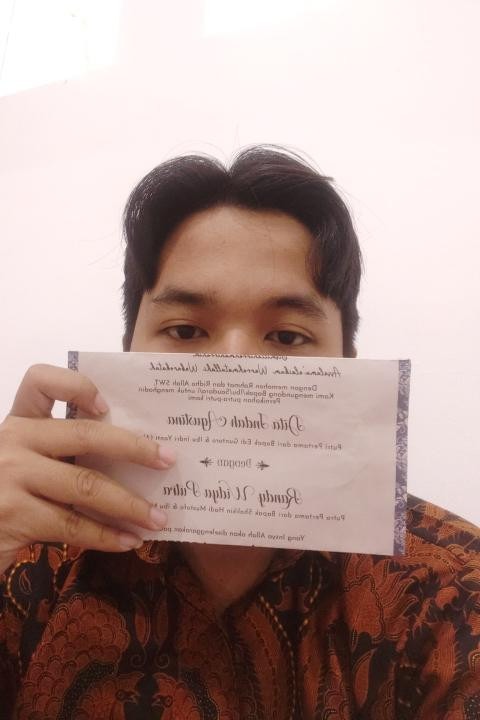 Assalamu'alaikum Warahmatullahi Wabarakatuh
Dengan memohon Rahmat dan Ridho Allah SWT
Kami mengundang Bapak/Ibu/Saudara/i untuk menghadiri
Pernikahan putra-putri kami
Dita Indah Agustina
Putri Pertama dari Bapak Edi Guntoro & Ibu Indri Yeni
Dengan
Randy Widya Putra
Putra Pertama dari Bapak Sholikhi Hadi Mustafa & Ibu
Yang Insya Allah akan diselenggarakan pada